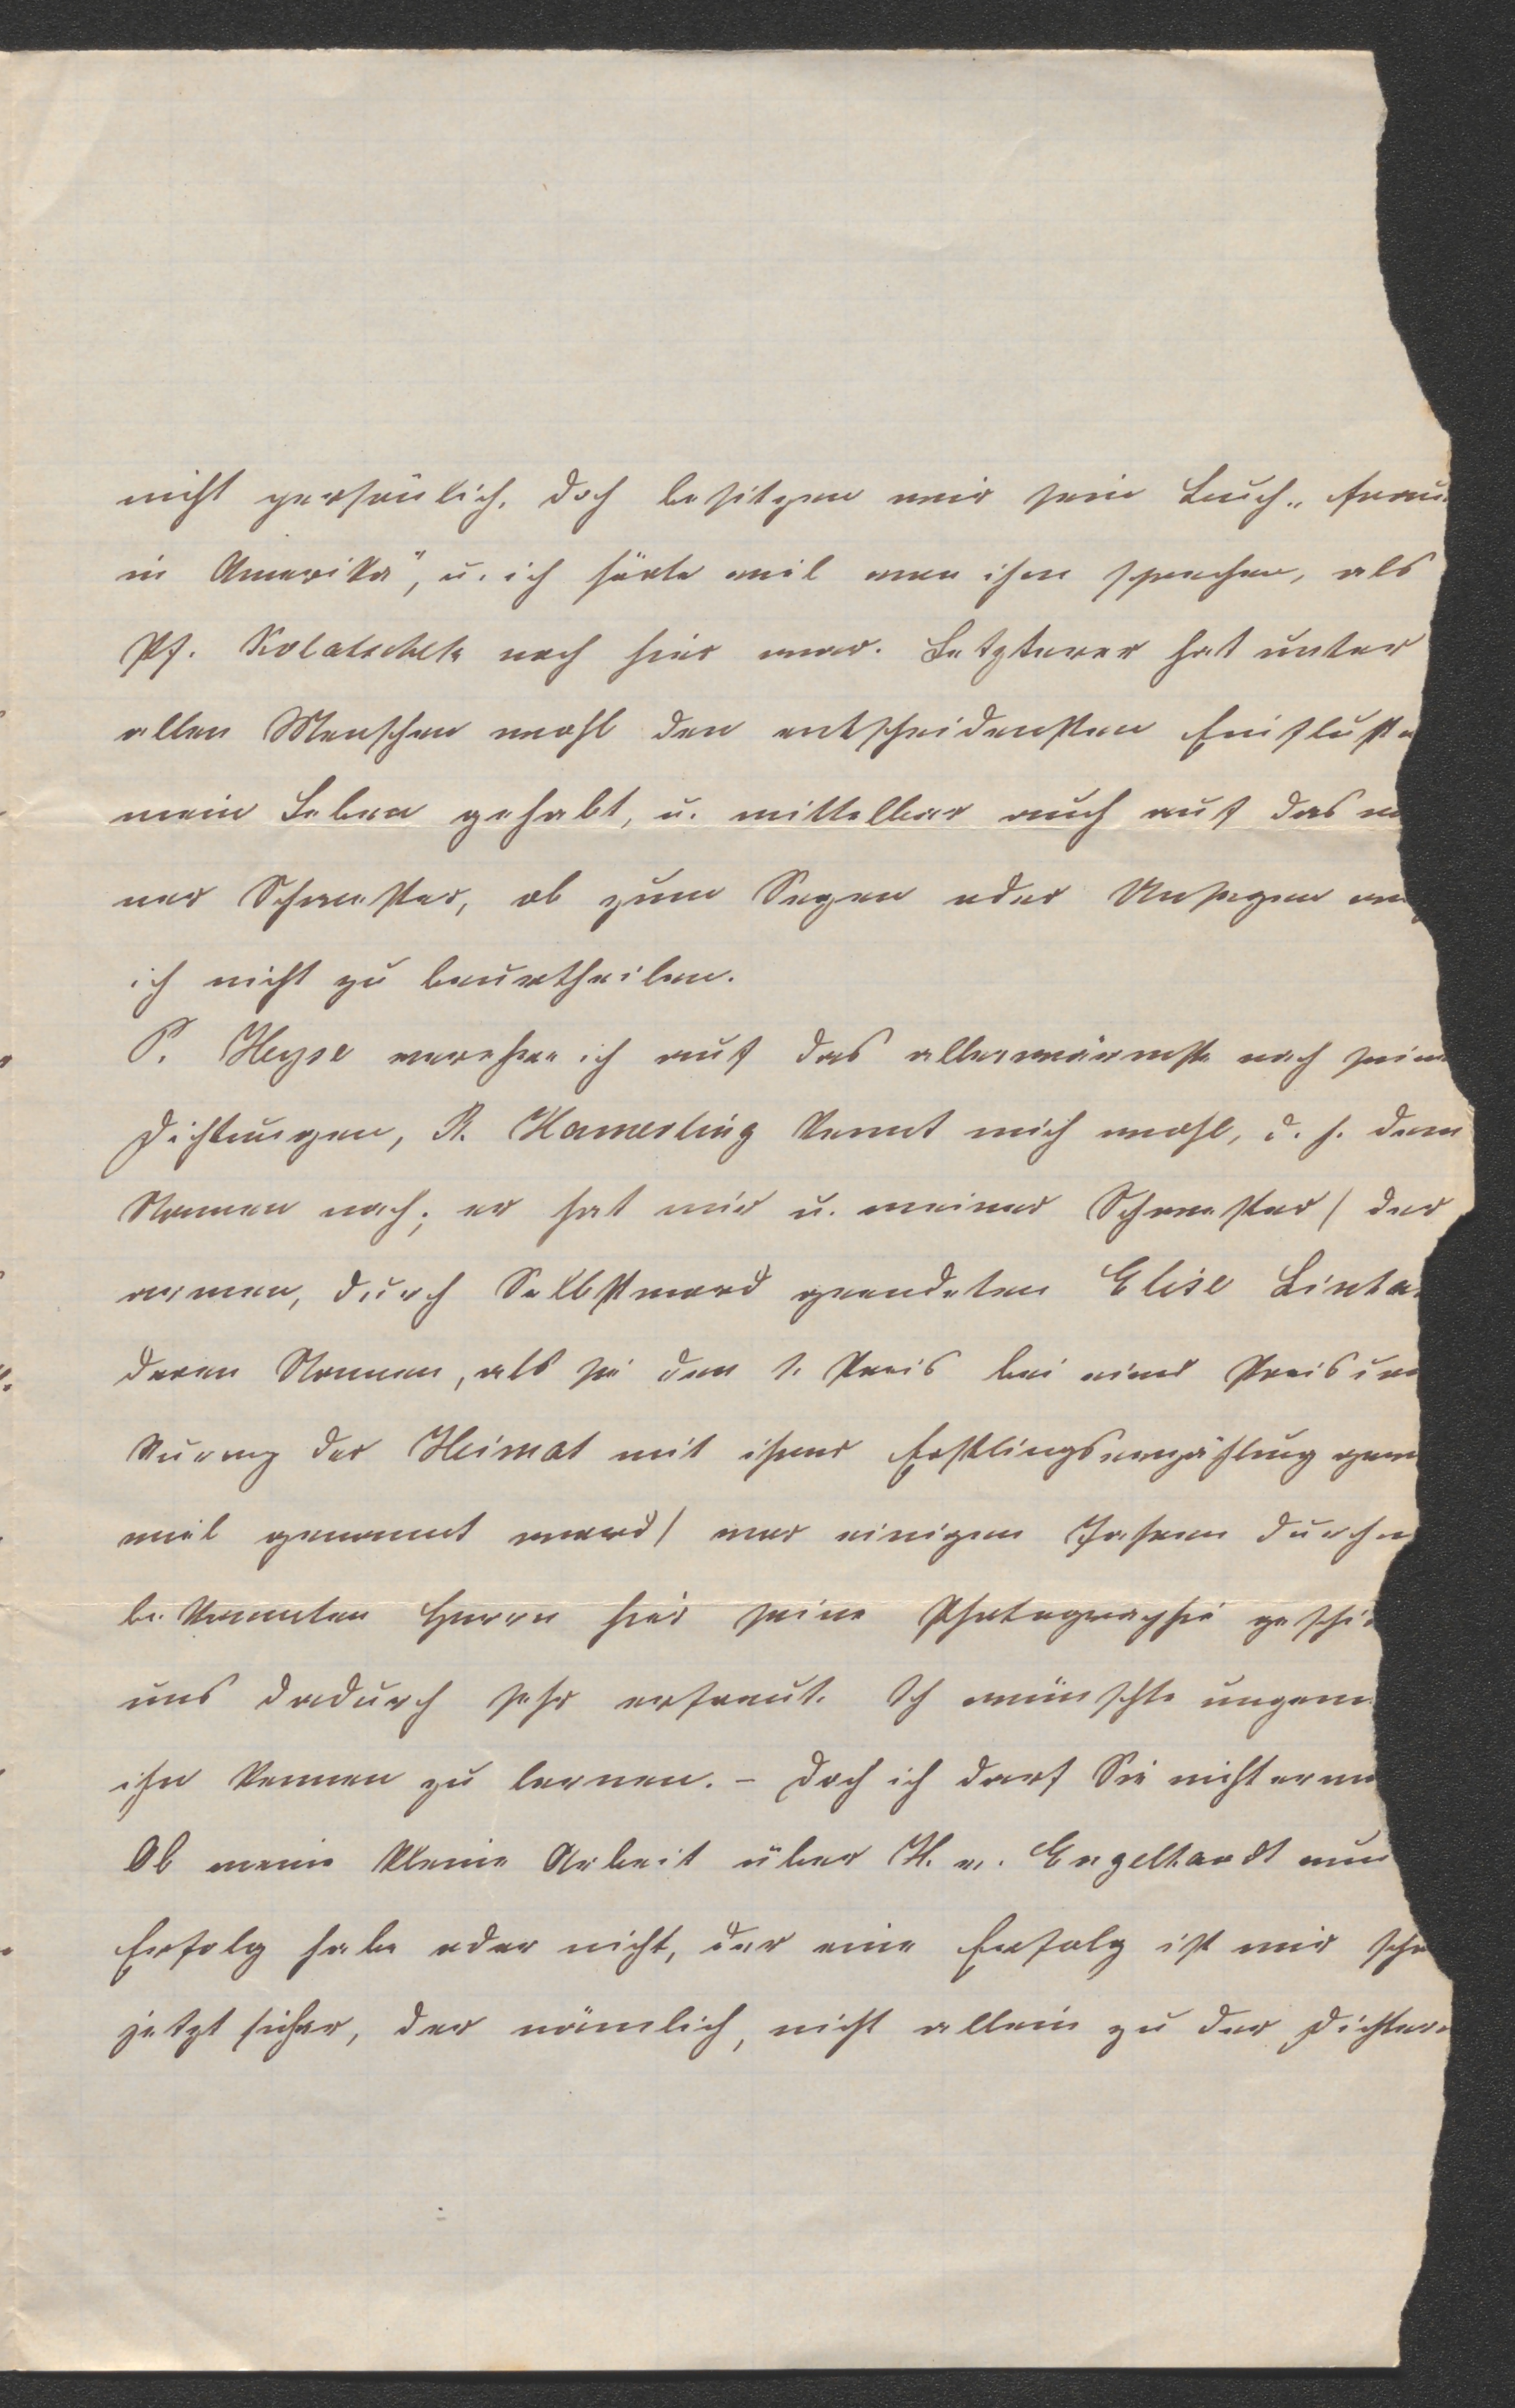 nicht persönlich, doch besitzen wir sein Buch „Frau
in Amerika", u. ich hörte viel von ihm sprechen, als
Pf. Kolatschek noch hier war. Letzterer hat unter
allen Menschen wohl den entscheidensten Einfluß
mein Leben gehabt, u. mittelbar auch auf das
ner Schwester, ob zum Segen oder Unsegen
ich nicht zu beurtheilen.
P. Heyse verehre ich auf das allerwärmste nach sein
Dichtungen, R. Hamerling kennt mich wohl, d. h. dem
Namen nach; er hat mir u. meiner Schwester / der
armen, durch Selbstmord geendeten Elise Linha
deren Namen, als sie den 1. Preis bei einer Preis
kurrenz der Heimat mit ihrer Erstlingserzählung gew
viel genannt ward / vor einigen Jahren durch
bekannten Herrn hier seine Photographie geschi
uns dadurch sehr erfreut. Ich wünschte ungem
ihn kennen zu lernen. – Doch ich darf Sie nicht erm
Ob meine kleine Arbeit über H. v. Engelhardt nun
Erfolg habe oder nicht, der eine Erfolg ist mir scho
jetzt sicher, der nämlich, nicht allein zu der Dichter